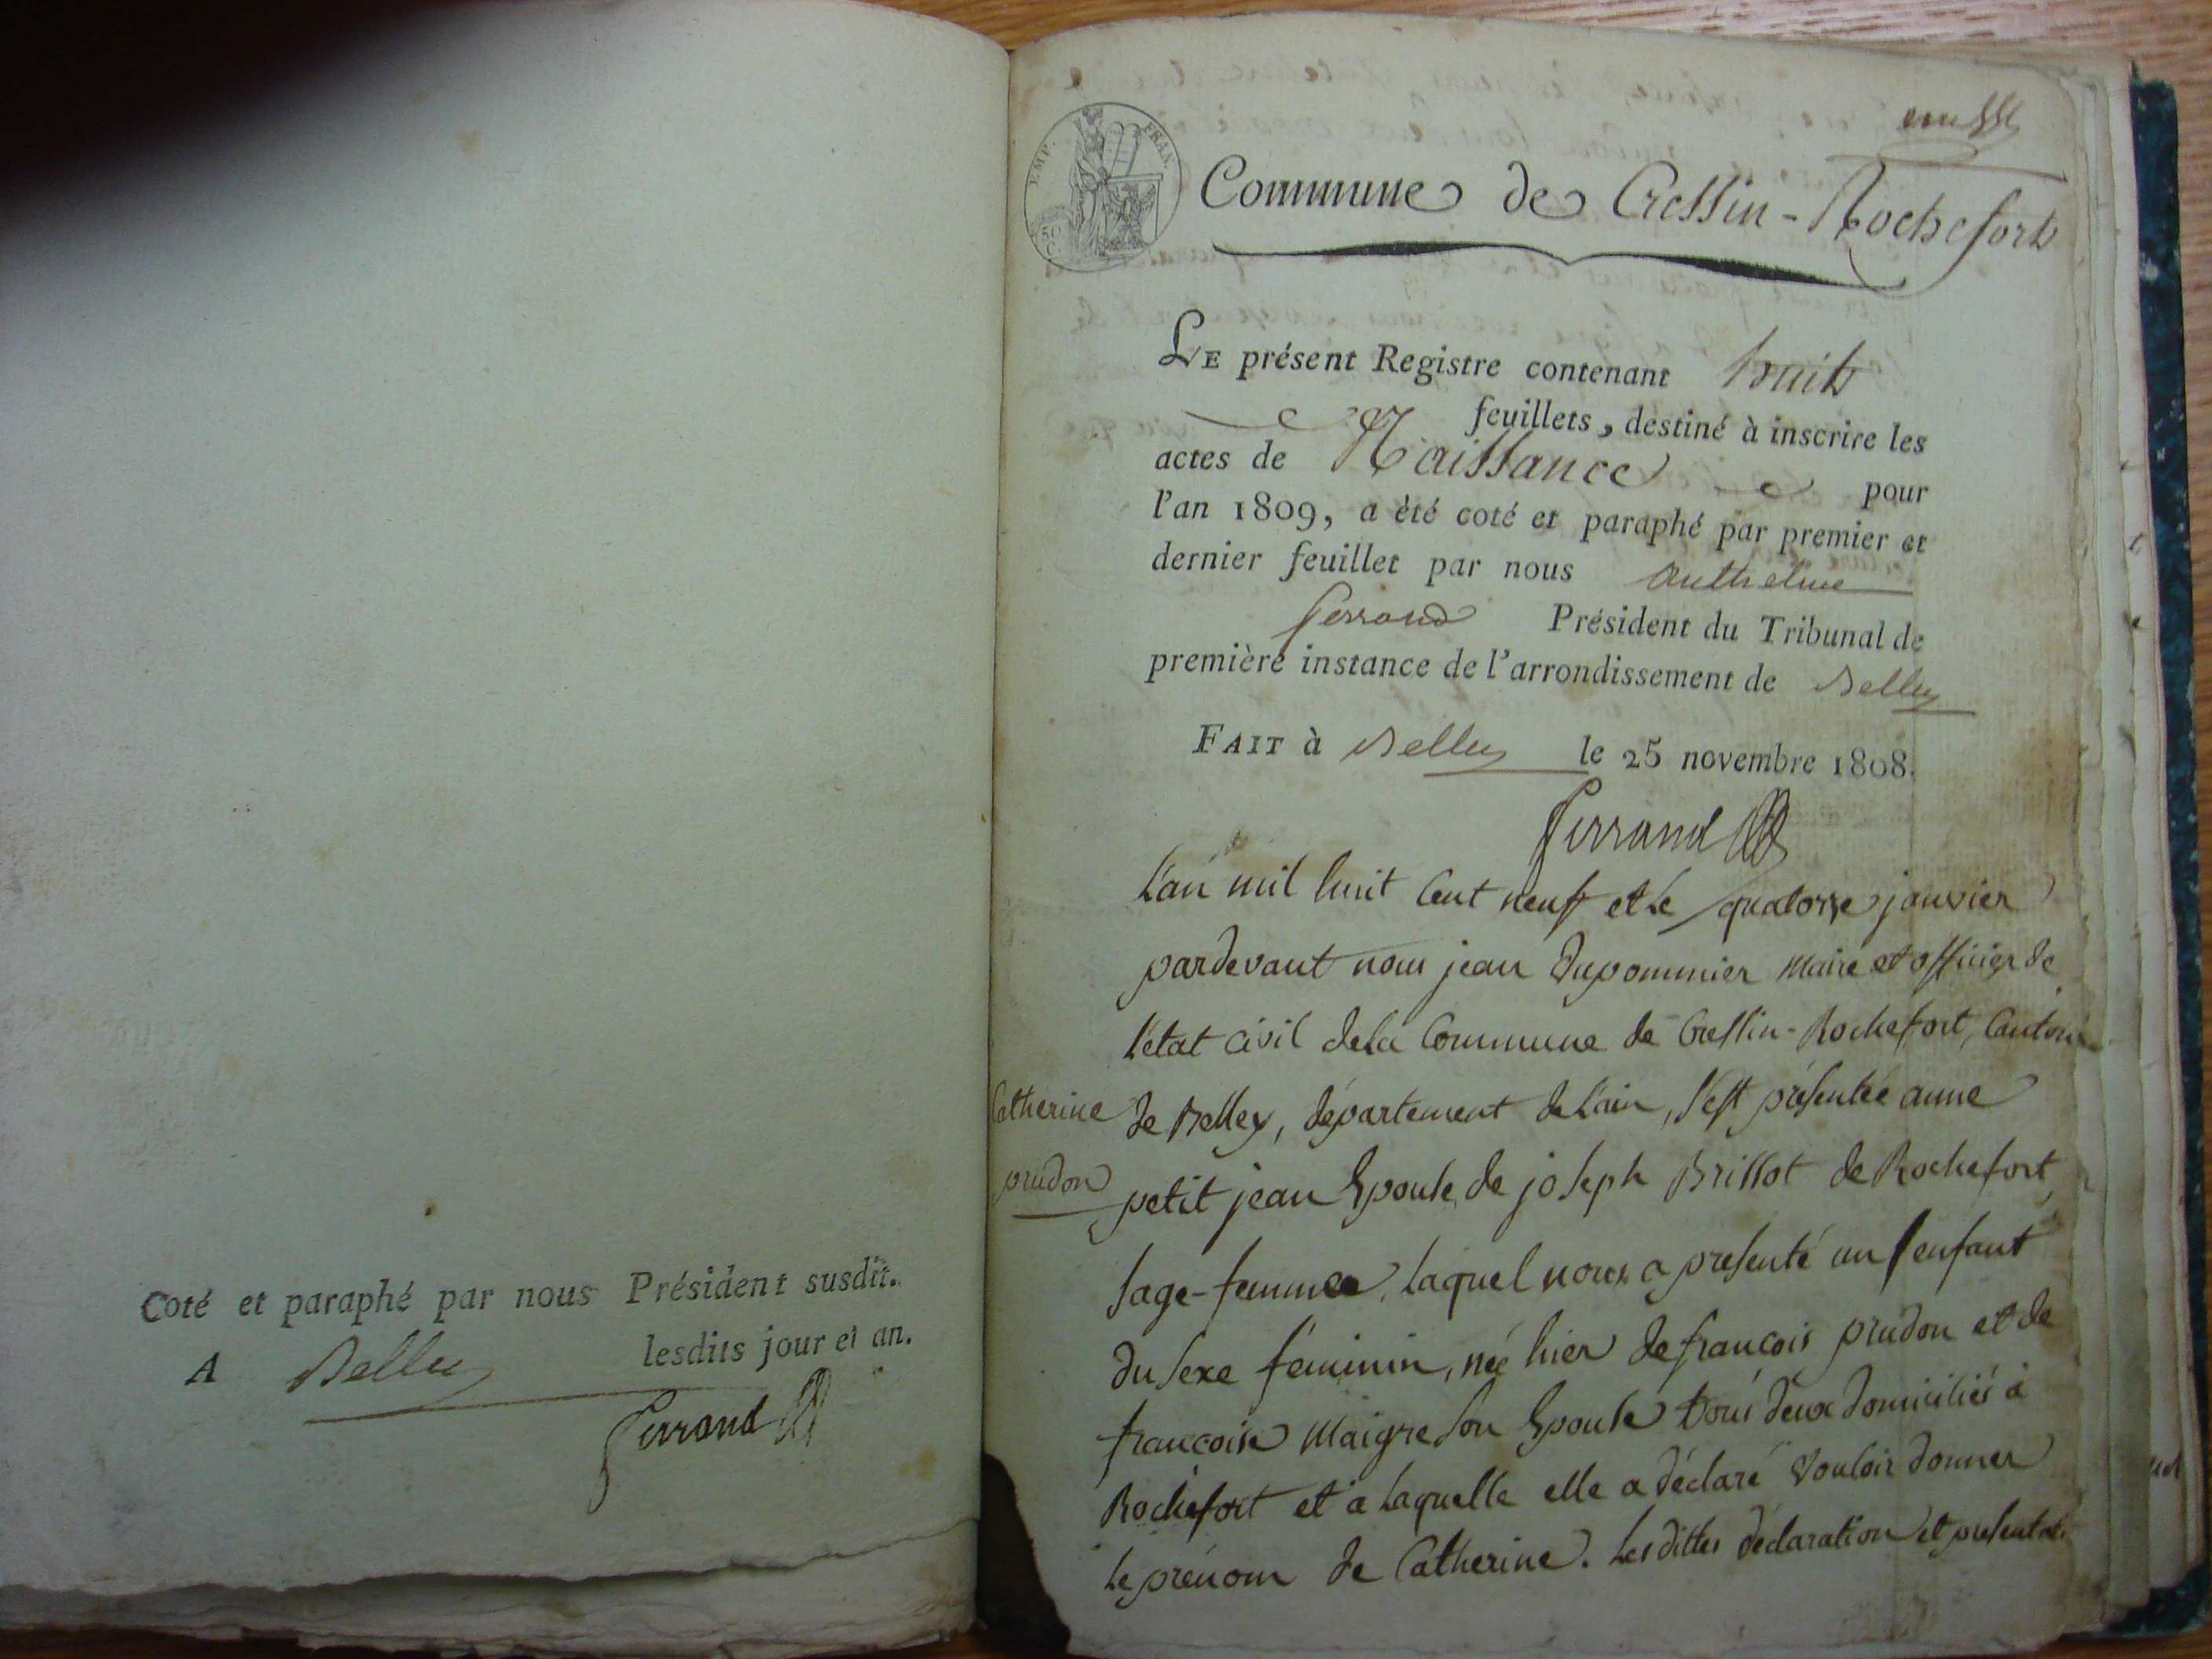 Coté et paraphé par nous Président susdit.
A Belley lesdits jour et an.
Ferrand
EMP. FRAN.
50
C.
Commune de Cressin-Rochefort
LE présent Registre contenant huit
feuillets, destiné à inscrire les
actes de Naissance pour
l'an 1809, a été coté et paraphé par premier et
dernier feuillet par nous anthelme
ferrand Président du Tribunal de
première instance de l'arrondissement de Belley
FAIT à Belley le 25 novembre 1808.
Ferrand
L'an mil huit Cent neuf et Le quatorze janvier
pardevant nous jean Dupommier Maire et officier de
l'état civil dela Commune de Cressin-Rochefort, Canton
Catherine
prudon
de Belley, département de L'ain, s'est présentée anne
petit jean Epouse de joseph Brillot de Rochefort,
sage-femme, Laquel nous a presenté un enfant
du sexe féminin, née hier de françois prudon et de
françoise Maigre son Epouse tous deux domiciliés à
Rochefort et à Laquelle elle a déclaré vouloir donner
Le prénom de Catherine. Les dittes déclaration et presentati